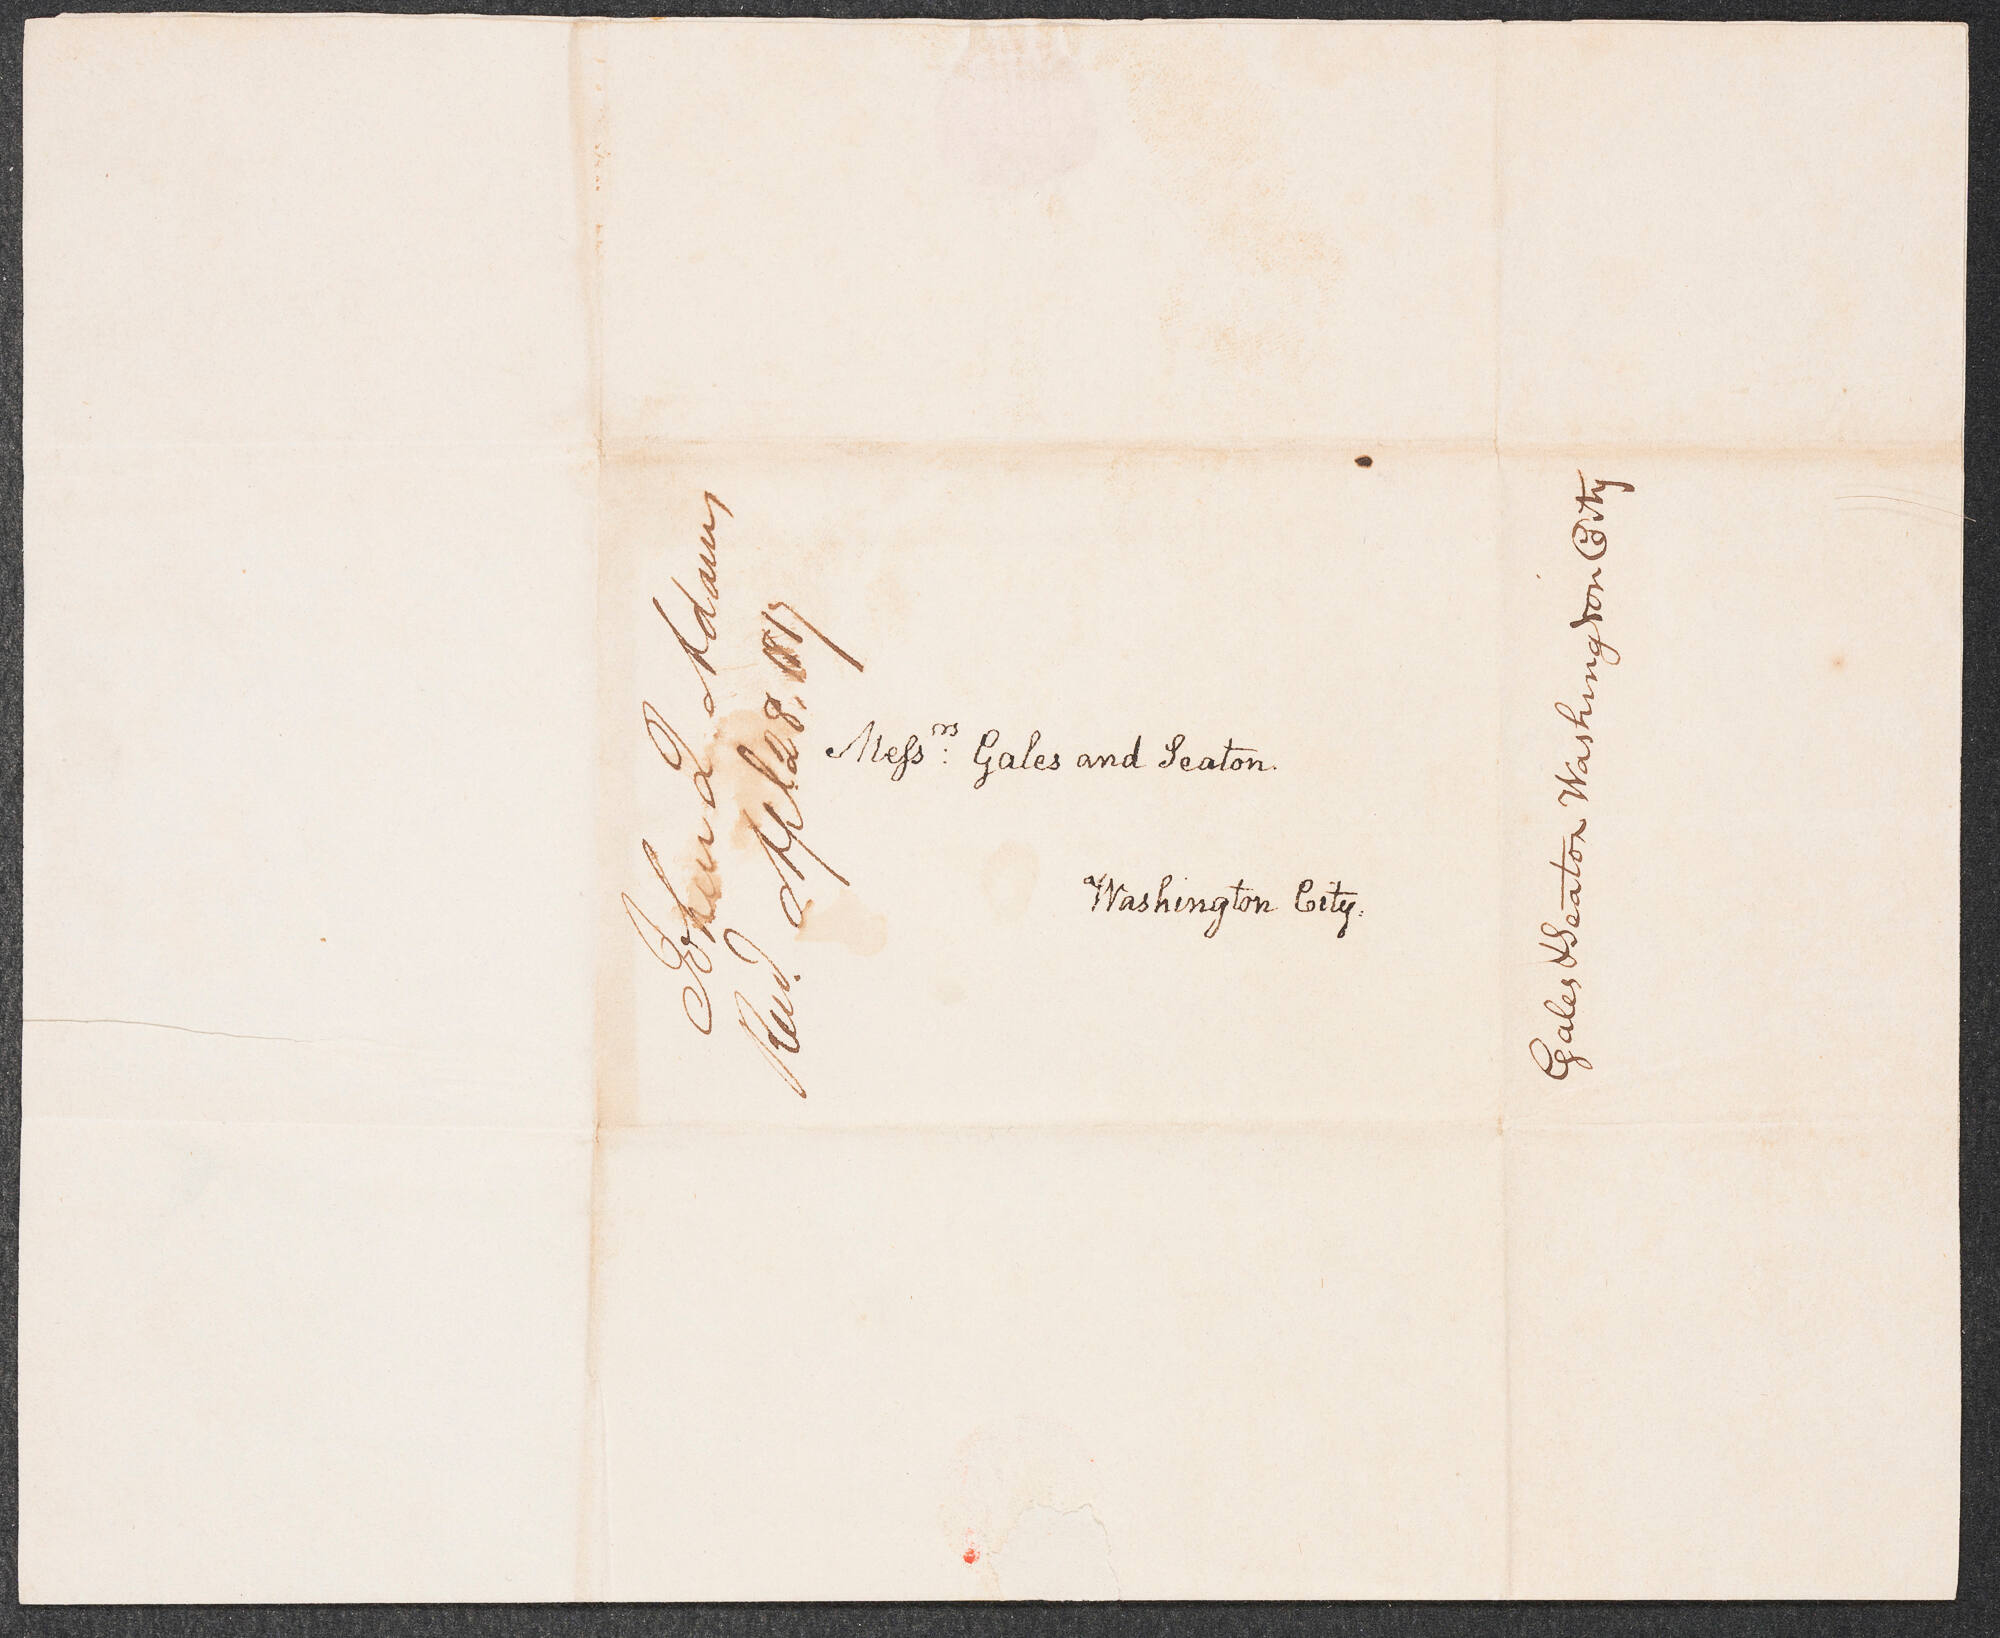 John Q. Adams
Recd. Apl. 28. 1817
Messrs: Gales and Seaton.
Washington City.
Gales & Seaton Washington City